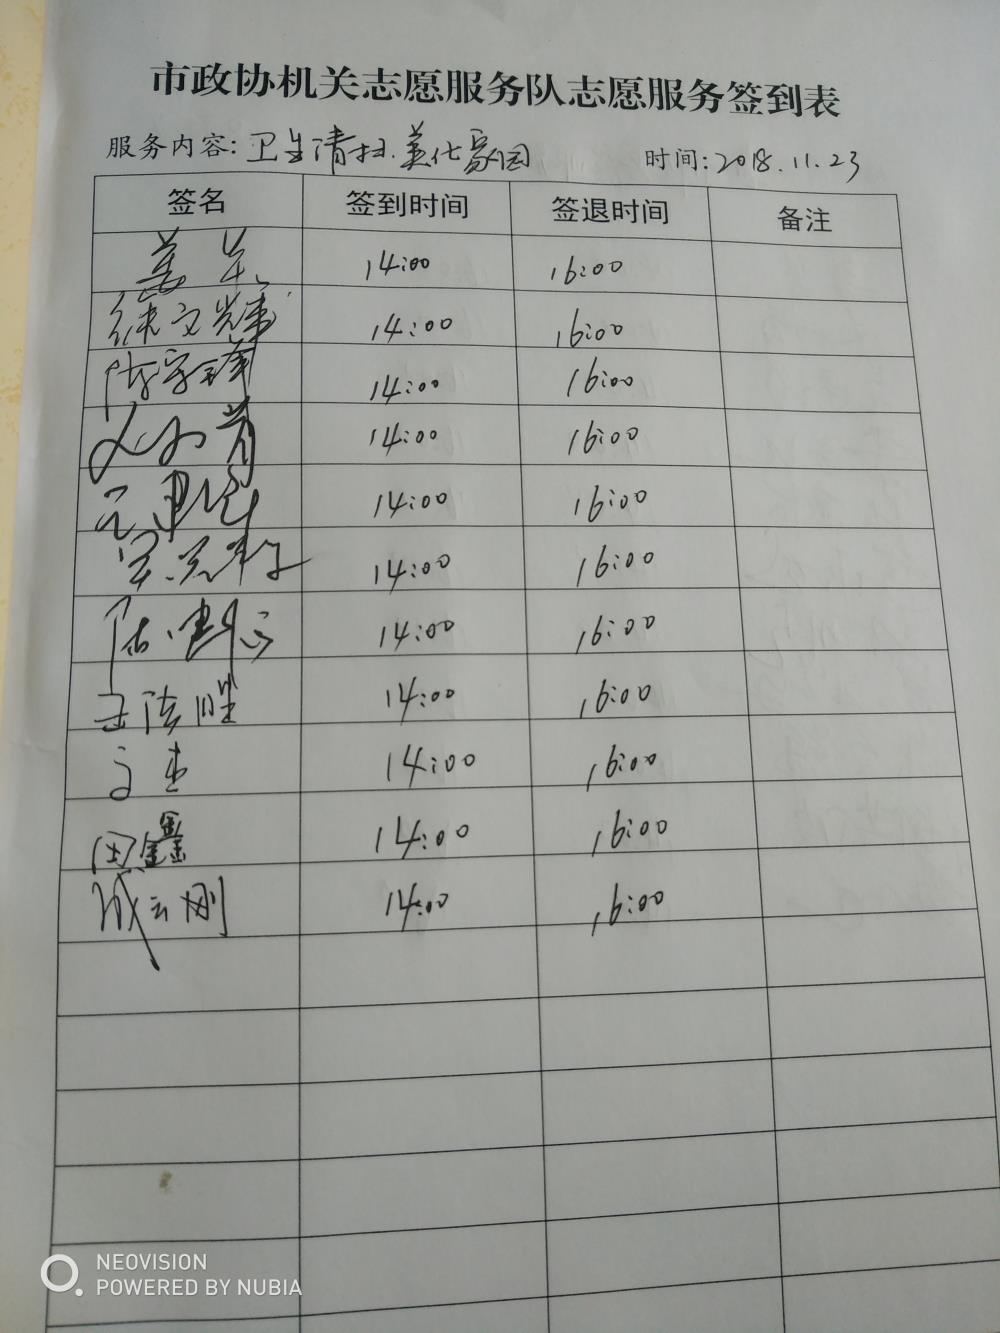 市政协机关志愿服务队志愿服务签到表
服务内容: 卫生清扫.美化家园 时间: 2018.11.23
签名 签到时间 签退时间 备注
姜 14:00 16:00
徐文辉 14:00 16:00
14:00 16:00
14:00 16:00
14:00 16:00
14:00 16:00
陈建 14:00 16:00
14:00 16:00
14:00 16:00
田鑫 14:00 16:00
云刚 14:00 16:00
NEOVISION
POWERED BY NUBIA